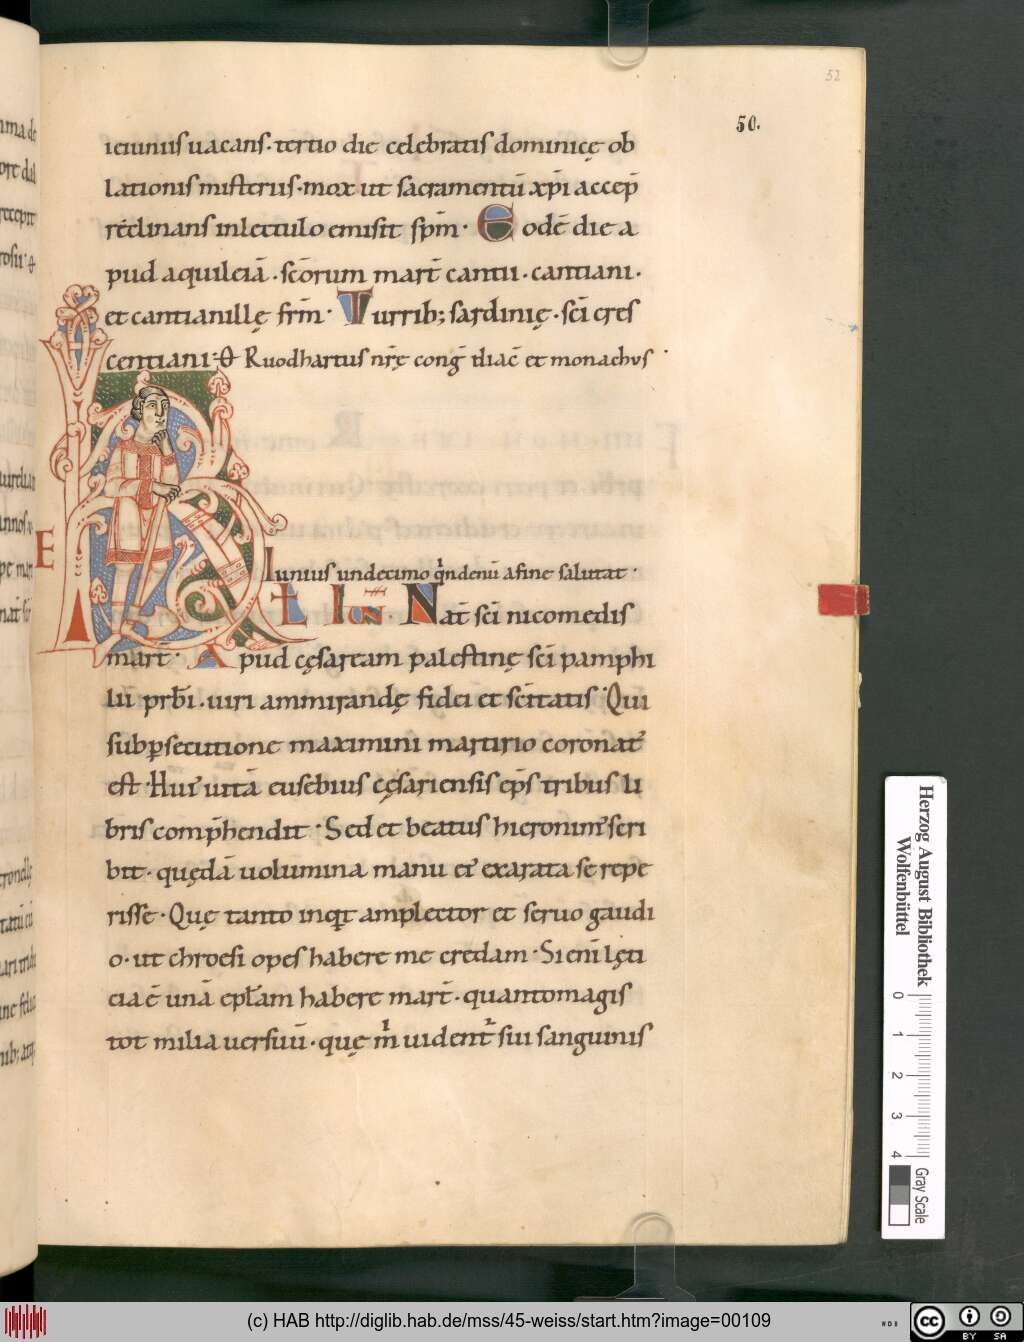 52
50.
ieiuniis uacans. tertio die celebratis dominicę ob
lationis misteriis. mox ut sacramentū xp̄i accep̄
reclinans in lectulo emisit sp̄m. Eodē die a
pud aquileiā. scōrum mart̄ cantii. cantiani.
et cantianillę fr̄m. Turrib; sardinię. sc̄i cres
centiani. Ꝋ Ruodhartus nr̄ę cong̅ diac̄ et monachus
E
Iunius undecimo q̊ndenū a fine salutat.
KL IUN. Nat̄ sc̄i nicomedis
mart̄. Apud cęsaream palestinę sc̄i pamphi
lii prb̄i. uiri ammirandę fidei et sc̄itatis. Qui
sub p̄secutione maximini martirio coronat᾽
est. Hui᾽ uitā eusebius cęsariensis ep̄s tribus li
bris comp̄hendit. Sed et beatus hieronim᾽ scri
bit. quędā uolumina manu ei᾽ exarata se repe
risse. Quę tanto inqt amplector et seruo gaudi
o. ut chroesi opes habere me credam. Si eni̅ lęti
cia ē unā ep̄lam habere mart̄. quanto magis
tot milia uersuū. quę m̊ uident᾽ sui sanguinis
Herzog August Bibliothek
Wolfenbüttel
0 1 2 3 4
Gray Scale
(c) HAB http://diglib.hab.de/mss/45-weiss/start.htm?image=00109
cc BY SA